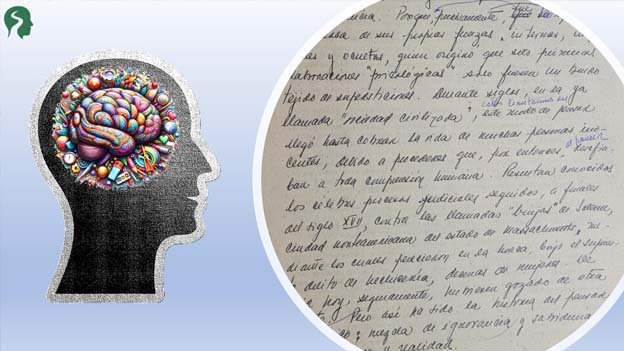 Porque, precisamente, que
de sus propias fuerzas, internas,
y ocultas, quien origino que sus primeras
"psicológicas" sólo fuesen un burdo
tejido de supersticiones. Durante siglos, en la ya
llamada "sociedad civilizada", este modo de pensar
llegó hasta cobrar la vida de muchas personas ino-
centes, debido a procederes que, por entonces, desafia-
ban a toda comprensión humana. Resultan conocidos
los célebres procesos judiciales seguidos, a finales
del siglo XVII, contra las llamadas "brujas" de Salem,
ciudad norteamericana del estado de Massachusetts, me-
diante los cuales perecieron en la horca, bajo el supues-
to delito de hechicería, decenas de mujeres. De
hoy, seguramente, hubiesen gozado de otra
Pero así ha sido la historia del pensa
mezcla de ignorancia y sabiduría
y realidad.